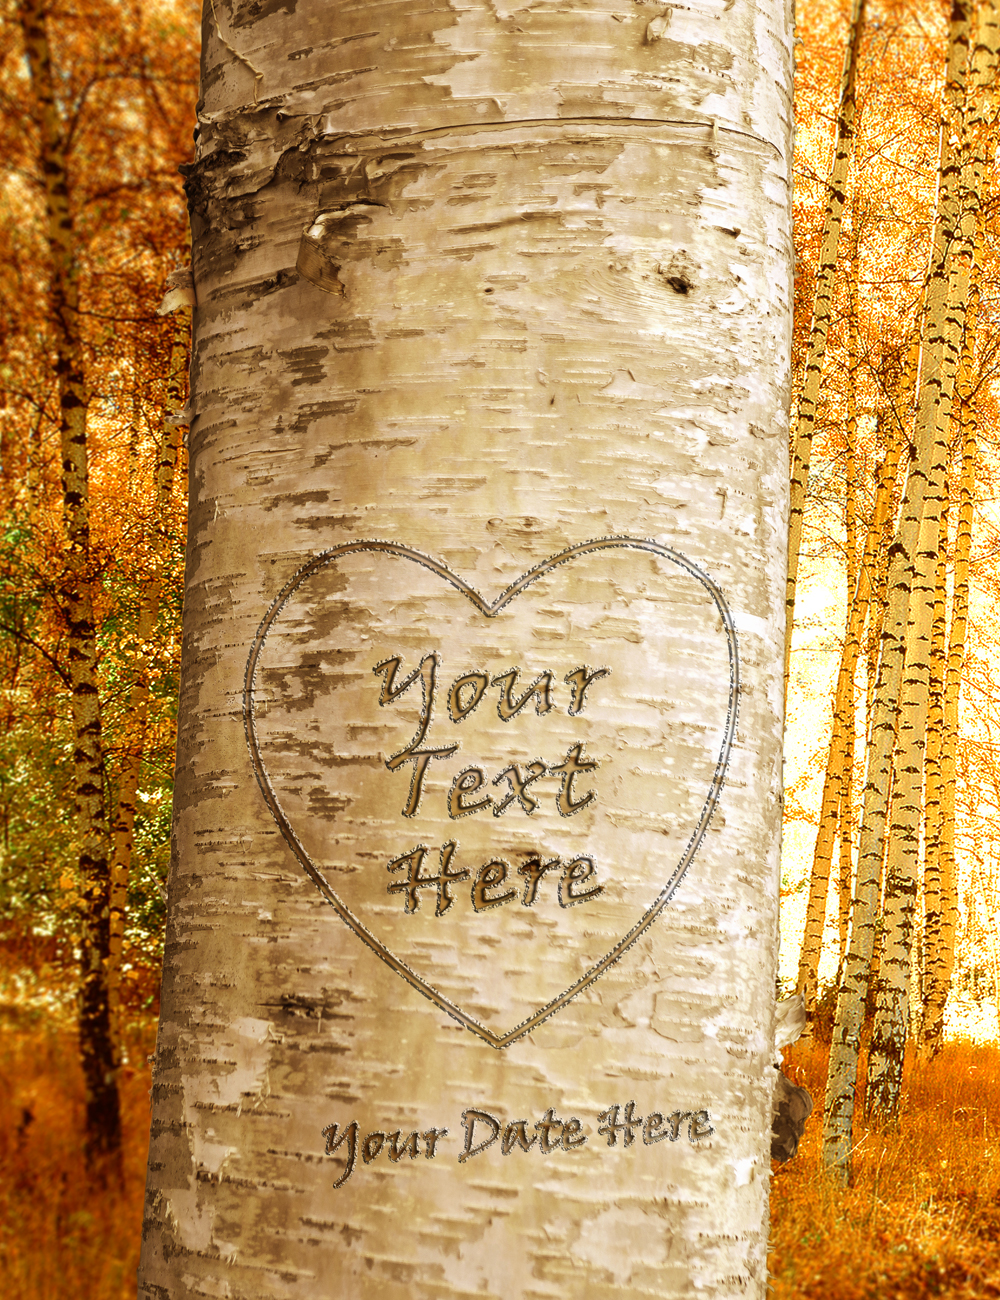 Your
Text
Here
Your Date Here